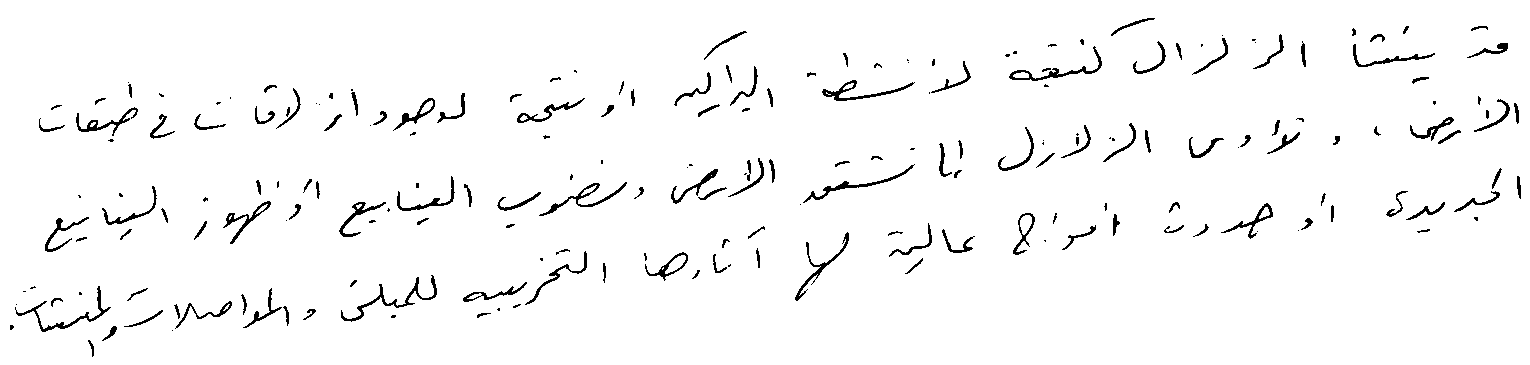 قد ينشأ الزلزال كنتيجة لأنشطة البراكين أو نتيجة لوجود انزلاقات في طبقات
الأرض ، وتؤدى الزلازل إلى تشقق الأرض ونضوب الينابيع أو ظهور الينابيع
الجديدة أو حدوث أمواج عالية لها آثارها التخريبيه للمبانى والمواصلات والمنشآت.